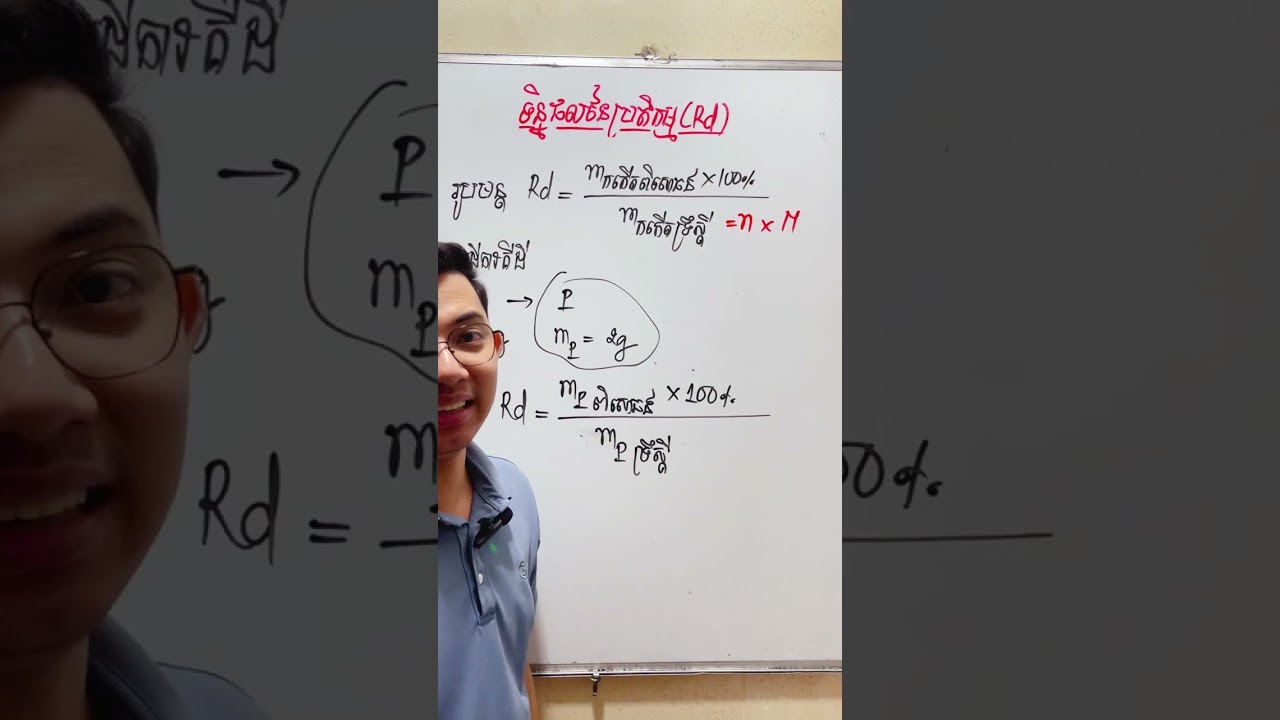 ទិន្នផលនៃប្រតិកម្ម(Rd)
រូបមន្ត Rd = mកកើតពិសោធន៍ × 100%
mកកើតទ្រឹស្តី = n × M
→ P
mP = 2g
Rd = mP ពិសោធន៍ × 100%
mP ទ្រឹស្តី